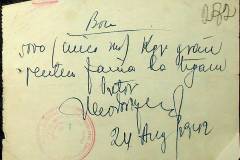 282
Bon
5000 (cinci mii) Kgr grâu
pentru faina la tigani
Pretor
24 Aug 1942